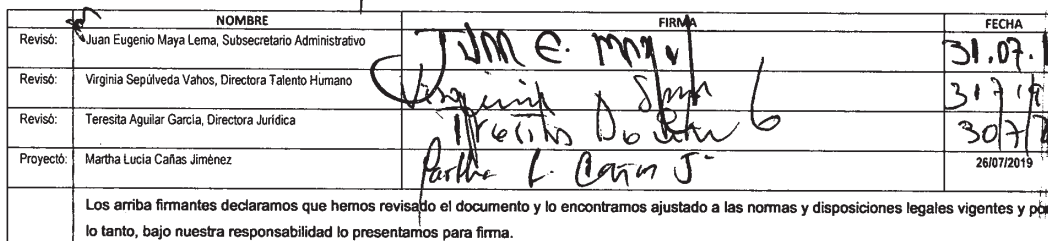 NOMBRE FIRMA FECHA
Revisó: Juan Eugenio Maya Lema, Subsecretario Administrativo 31.07.
Revisó: Virginia Sepúlveda Vahos, Directora Talento Humano Virginia
Revisó: Teresita Aguilar García, Directora Jurídica 30/7/
Proyectó: Martha Lucía Cañas Jiménez Martha L. Cañas J 26/07/2019
Los arriba firmantes declaramos que hemos revisado el documento y lo encontramos ajustado a las normas y disposiciones legales vigentes y por
lo tanto, bajo nuestra responsabilidad lo presentamos para firma.